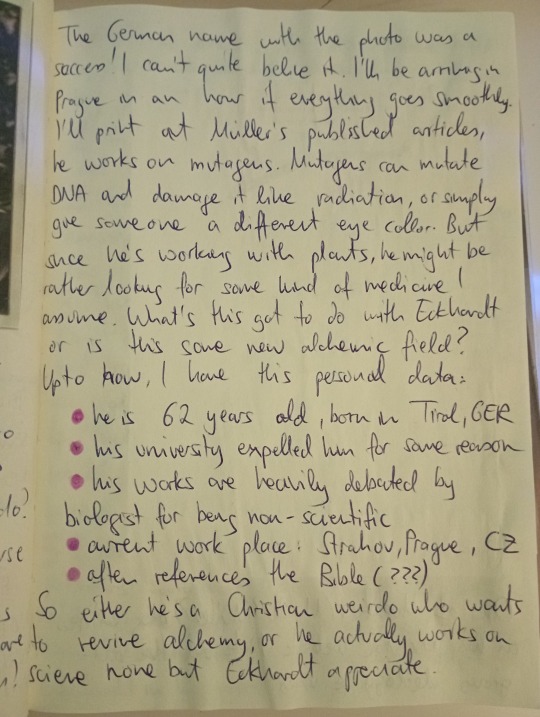 The German name with the photo was a
success! I can't quite belive it. I'll be arriving in
Prague in an hour if everything goes smoothly.
I'll print out Müller's published articles,
he works on mutagens. Mutagens can mutate
DNA and damage it like radiation, or simply
give someone a different eye collor. But
since he's working with plants, he might be
rather looking for some kind of medicine I
assume. What's this got to do with Eckhardt
or is this some new alchemic field?
Up to now, I have this personal data:
• he is 62 years old, born in Tirol, GER
• his university expelled him for some reason
• his works are heavily debated by
biologist for being non-scientific
• current work place: Strahov, Prague, CZ
• often references the Bible (???)
So either he's a Christian weirdo who wants
to revive alchemy, or he actually works on
sciene none but Eckhardt appreciate.